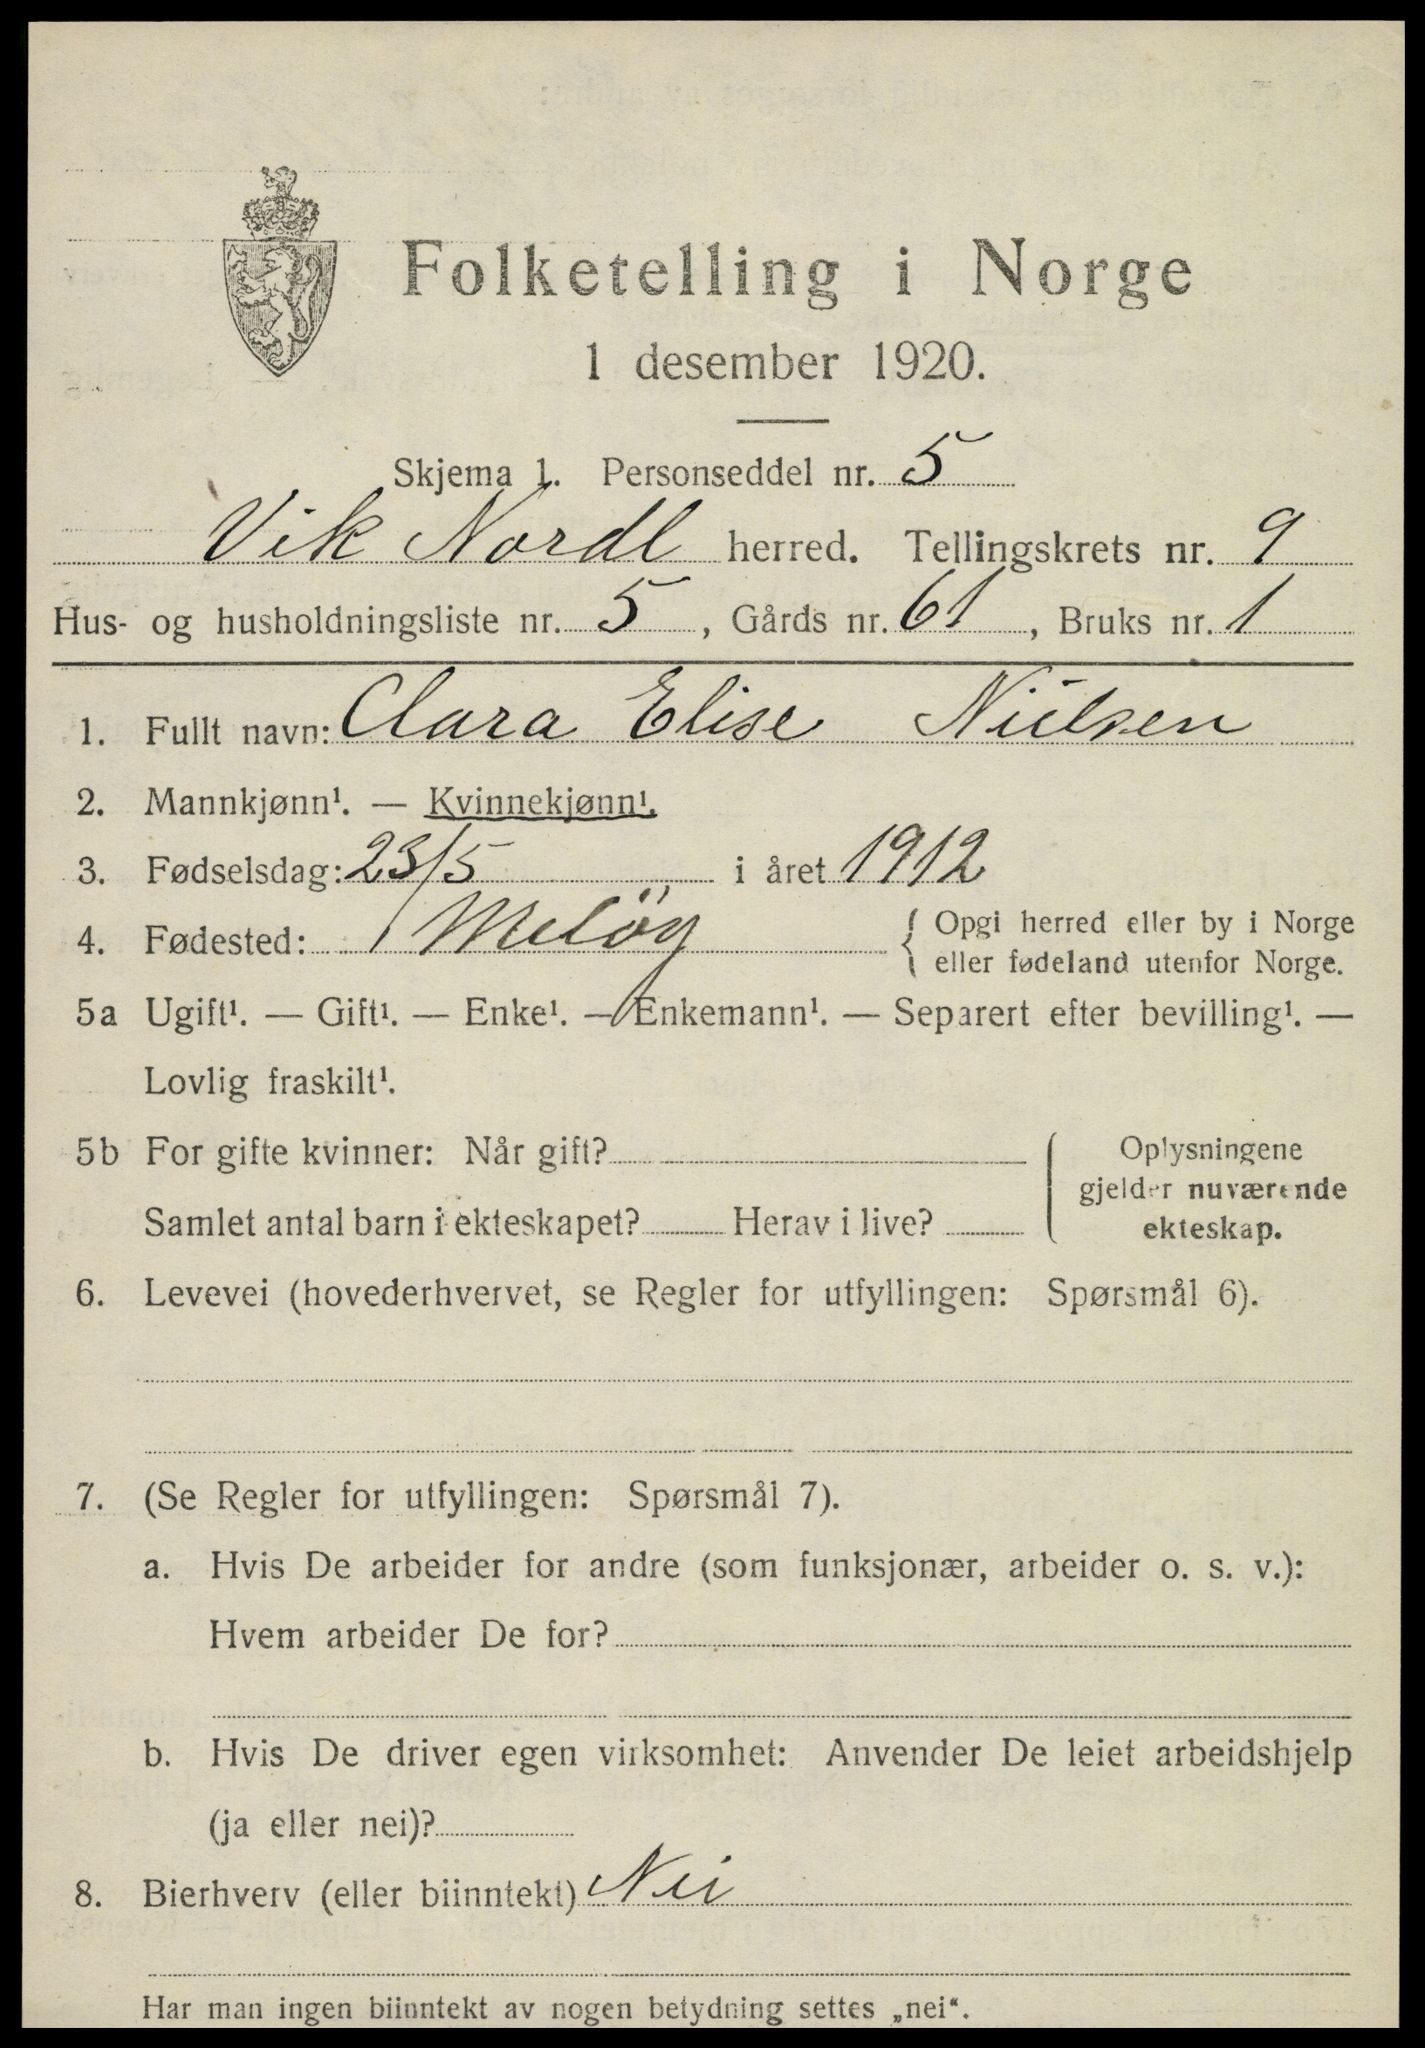 Folketelling i Norge
1 desember 1920.
Skjema 1. Personseddel nr. 5
Vik Nordl herred. Tellingskrets nr. 9
Hus- og husholdningsliste nr. 5, Gårds nr. 61, Bruks nr. 1
1. Fullt navn: Clara Elise Nielsen
2. Mannkjønn¹. — Kvinnekjønn¹.
3. Fødselsdag: 23/5 i året 1912
4. Fødested: Melöy { Opgi herred eller by i Norge
eller fødeland utenfor Norge.
5a Ugift¹. — Gift¹. — Enke¹. — Enkemann¹. — Separert efter bevilling¹. —
Lovlig fraskilt¹.
5b For gifte kvinner: Når gift?
Samlet antal barn i ekteskapet? Herav i live?
Oplysningene
gjelder nuværende
ekteskap.
6. Levevei (hovederhvervet, se Regler for utfyllingen: Spørsmål 6).
7. (Se Regler for utfyllingen: Spørsmål 7).
a. Hvis De arbeider for andre (som funksjonær, arbeider o. s. v.):
Hvem arbeider De for?
b. Hvis De driver egen virksomhet: Anvender De leiet arbeidshjelp
(ja eller nei)?
8. Bierhverv (eller biinntekt) Nei
Har man ingen biinntekt av nogen betydning settes „nei“.